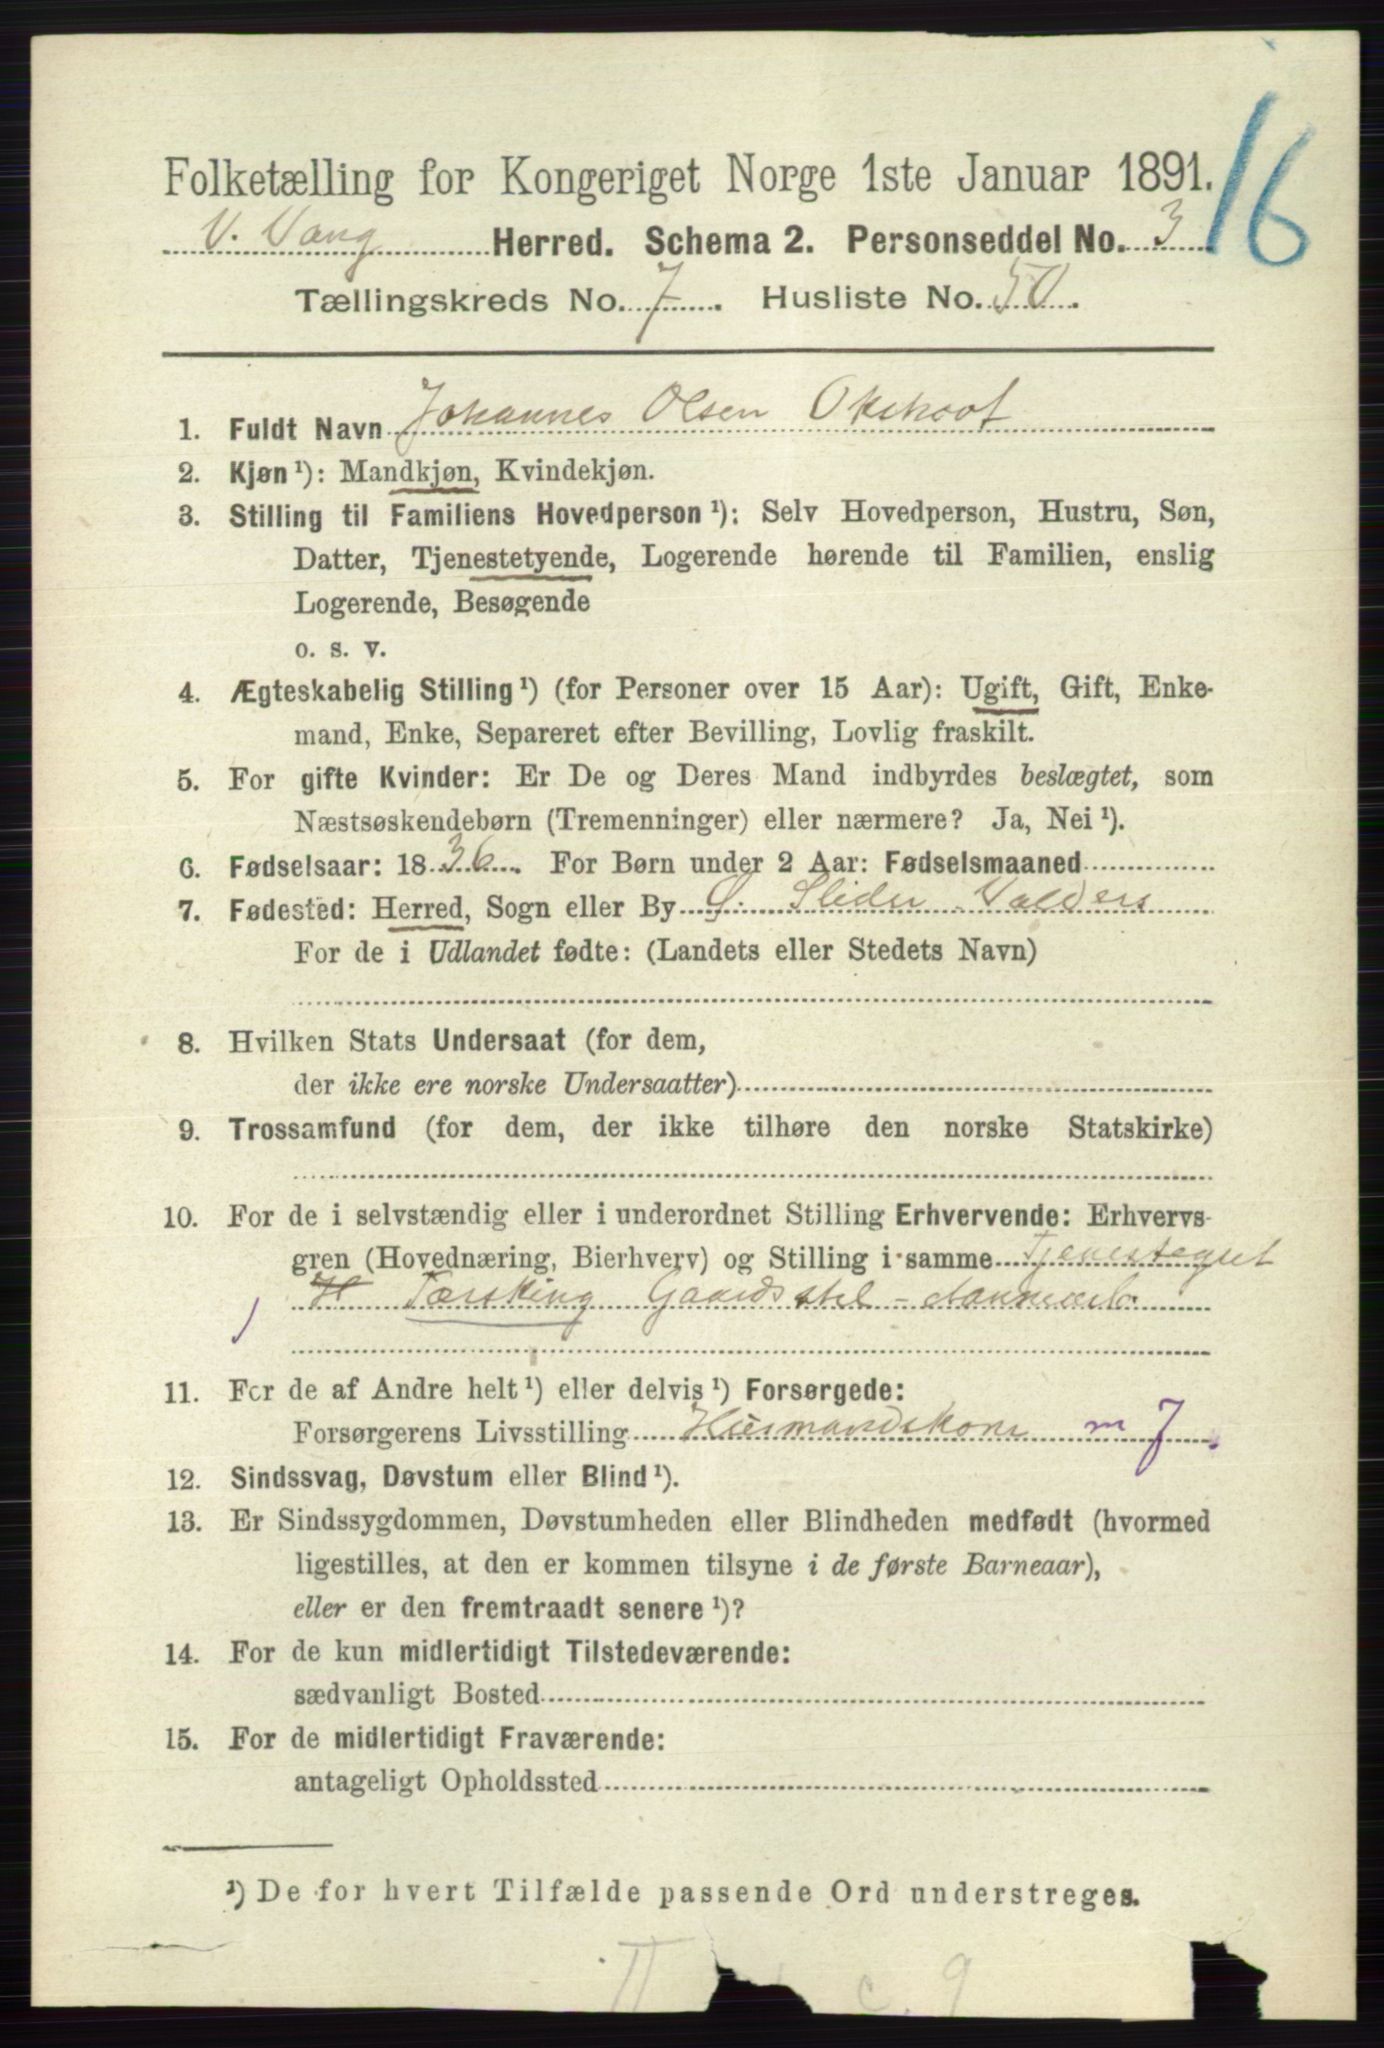 16
Folketælling for Kongeriget Norge 1ste Januar 1891.
V. Vang Herred. Schema 2. Personseddel No. 3
Tællingskreds No. 7. Husliste No. 50.
1. Fuldt Navn Johannes Olsen
2. Kjøn ¹): Mandkjøn, Kvindekjøn.
3. Stilling til Familiens Hovedperson ¹): Selv Hovedperson, Hustru, Søn,
Datter, Tjenestetyende, Logerende hørende til Familien, enslig
Logerende, Besøgende
o. s. v.
4. Ægteskabelig Stilling ¹) (for Personer over 15 Aar): Ugift, Gift, Enke-
mand, Enke, Separeret efter Bevilling, Lovlig fraskilt.
5. For gifte Kvinder: Er De og Deres Mand indbyrdes beslægtet, som
Næstsøskendebørn (Tremenninger) eller nærmere? Ja, Nei ¹).
6. Fødselsaar: 1836. For Børn under 2 Aar: Fødselsmaaned
7. Fødested: Herred, Sogn eller By Ø. Slider Valders
For de i Udlandet fødte: (Landets eller Stedets Navn)
8. Hvilken Stats Undersaat (for dem,
der ikke ere norske Undersaatter)
9. Trossamfund (for dem, der ikke tilhøre den norske Statskirke)
10. For de i selvstændig eller i underordnet Stilling Erhvervende: Erhvervs-
gren (Hovednæring, Bierhverv) og Stilling i samme
Tærsking
11. For de af Andre helt ¹) eller delvis ¹) Forsørgede:
Forsørgerens Livsstilling Husmandskone m 7
12. Sindssvag, Døvstum eller Blind ¹).
13. Er Sindssygdommen, Døvstumheden eller Blindheden medfødt (hvormed
ligestilles, at den er kommen tilsyne i de første Barneaar),
eller er den fremtraadt senere ¹)?
14. For de kun midlertidigt Tilstedeværende:
sædvanligt Bosted
15. For de midlertidigt Fraværende:
antageligt Opholdssted
¹) De for hvert Tilfælde passende Ord understreges.
II c. 9